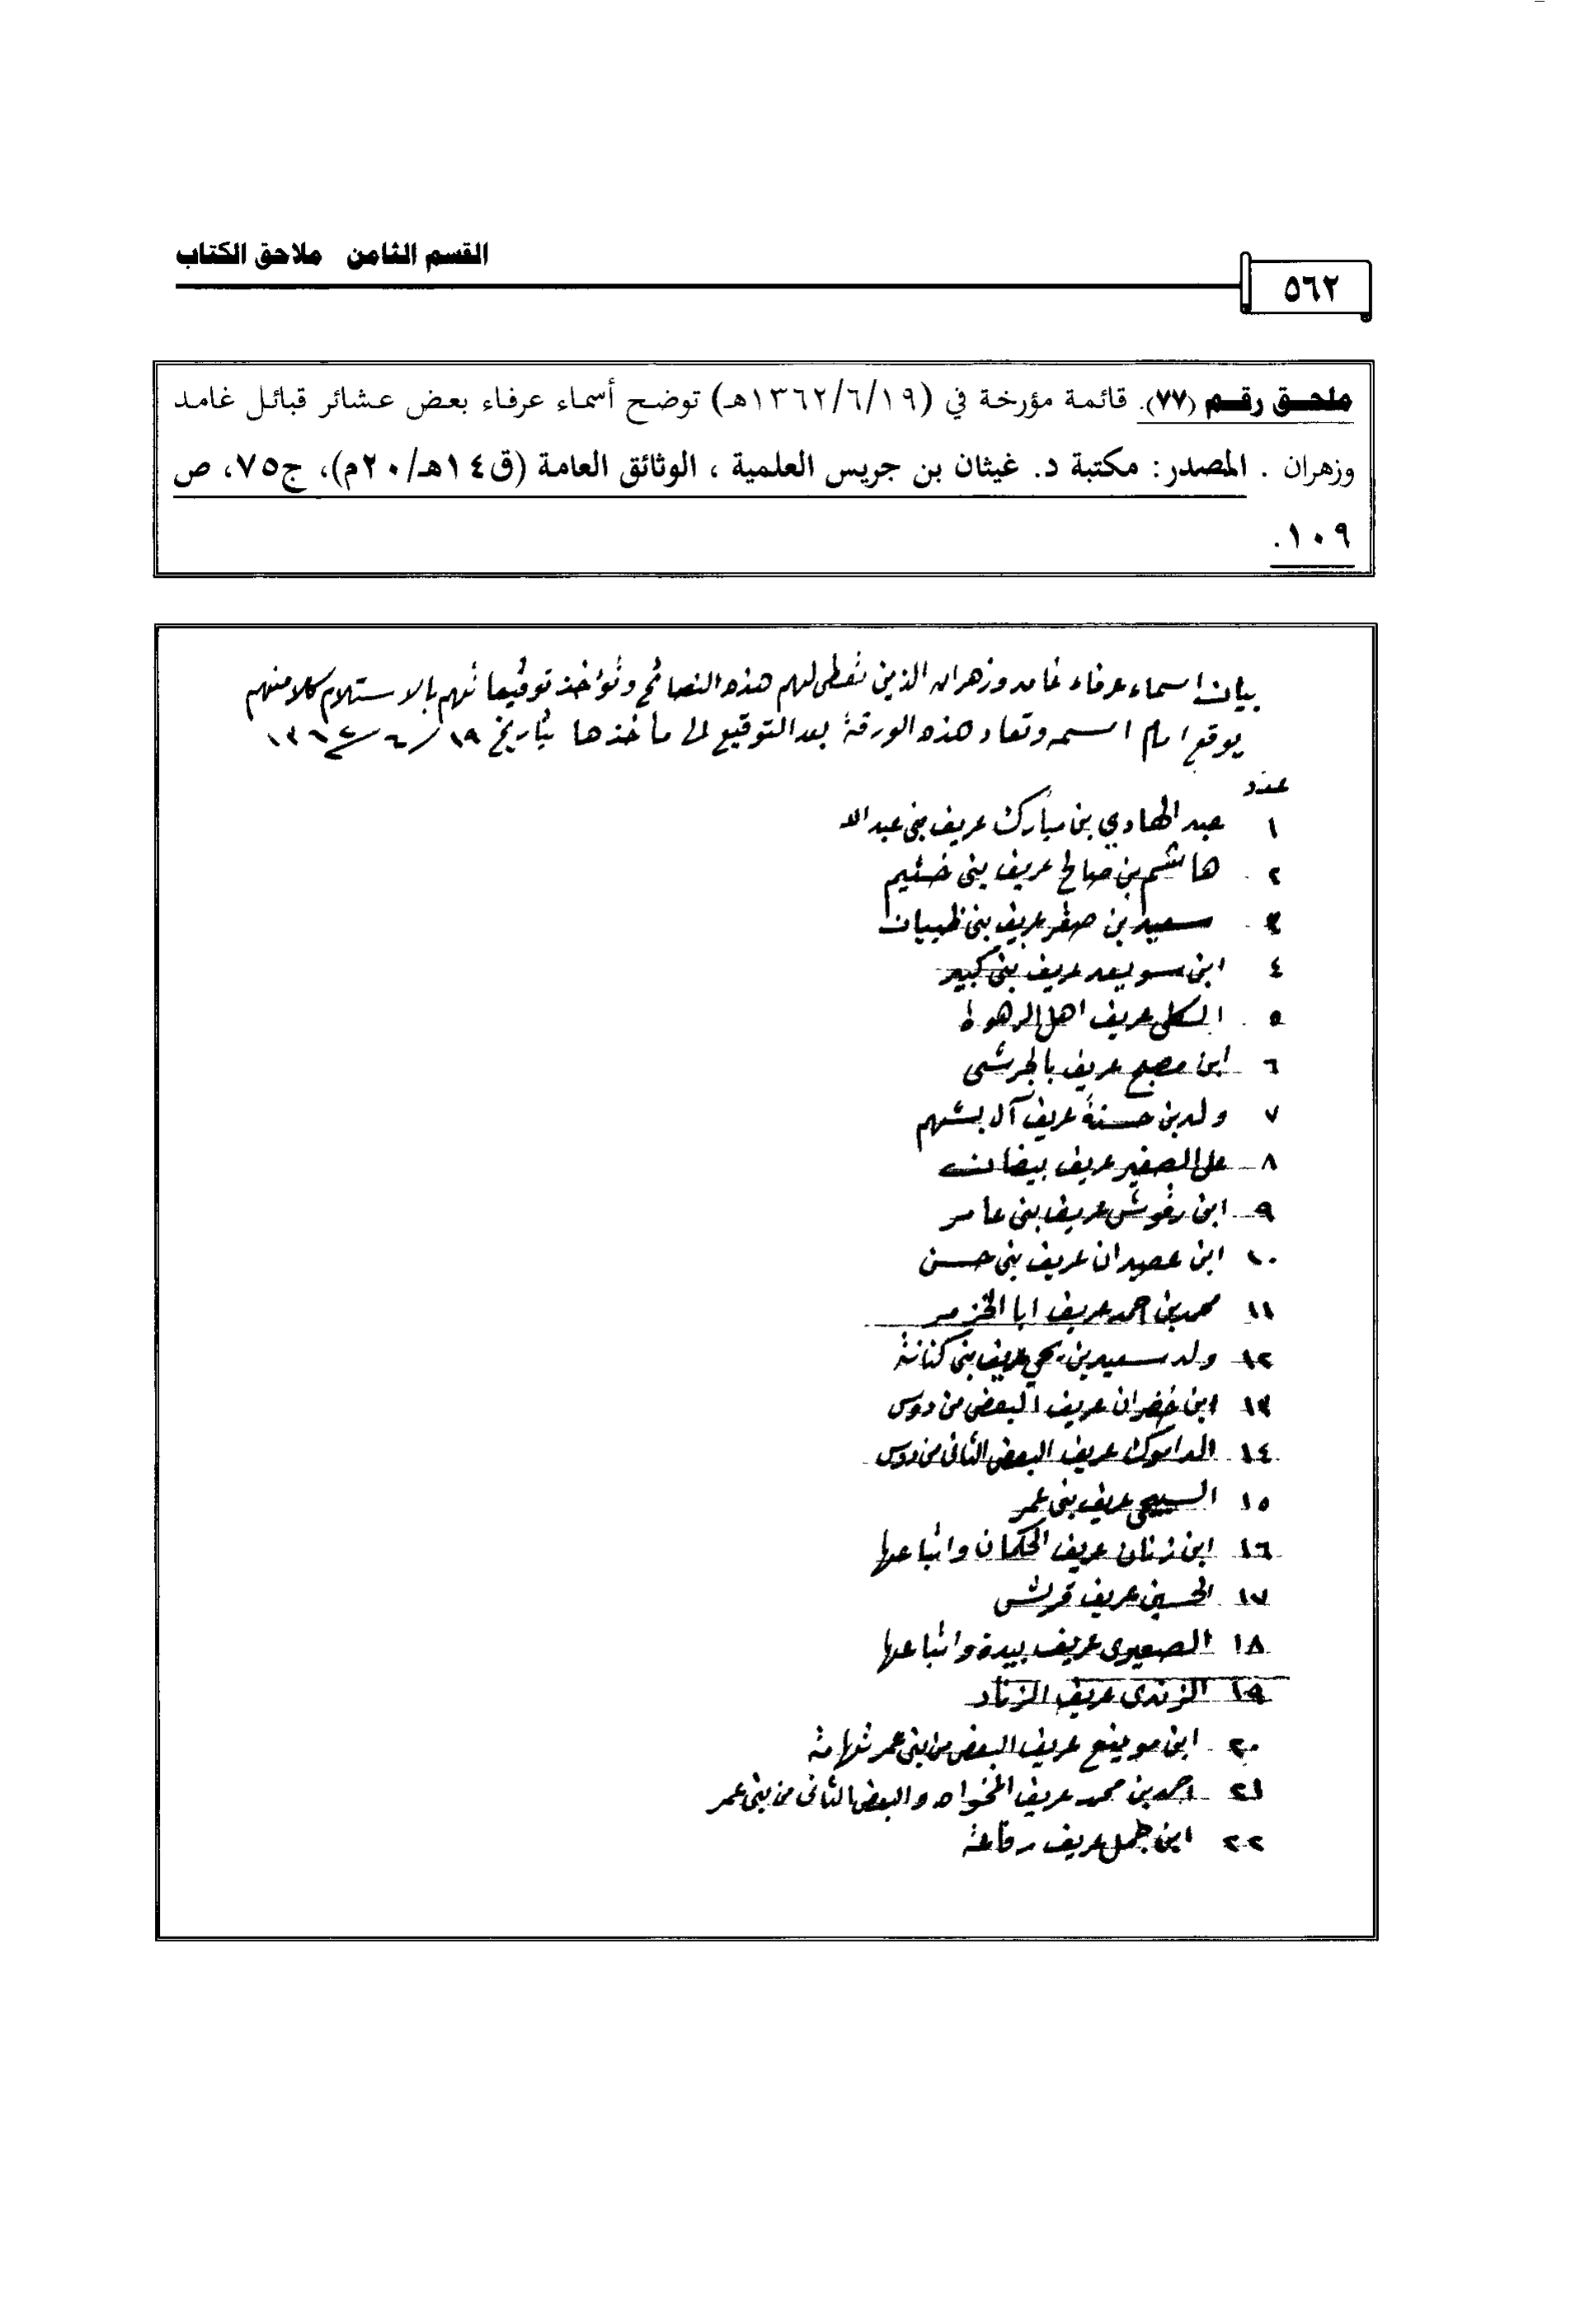 القسم الثامن ملاحق الكتاب
٥٦٢
ملحق رقم (٧٧). قائمة مؤرخة في (١٣٦٢/٦/١٩هـ) توضح أسماء عرفاء بعض عشائر قبائل غامد
وزهران . المصدر: مكتبة د. غيثان بن جريس العلمية ، الوثائق العامة (ق١٤هـ/٢٠م)، ج٧٥، ص
١٠٩.
بيان اسماء عرفاء غامد وزهران الذين تعطى لهم هذه النصائح وتؤخذ توقيعاتهم بالاستلام كلا منهم
يوقع امام اسمه وتعاد هذه الورقة بعد التوقيع الى مأخذها بتاريخ ١٩/٦/١٣٦٢
عدد
١ عبد الهادي بن مبارك عريف بني عبد الله
٢ هاشم بن صالح عريف بني خثيم
٣ سعيد بن صقر عريف بني ظبيان
٤ ابن سويعد عريف بني كبير
٥ عريف اهل الرهوة
٦ ابن مصبح عريف بالجرشي
٧ ولد بن حسنة عريف آل بشهم
٨ علي الصغير عريف بيضان
٩ ابن رقوش عريف بني عامر
١٠ ابن عصيدان عريف بني حسن
١١ محمد بن احمد عريف ابا الخزمر
١٢ ولد سعيد بن يحي عريف بني كنانة
١٣ ابن خضران عريف البعض من دوس
١٤ الداموك عريف البعض الثاني من دوس
١٥ السبيحي عريف بني عمر
١٦ ابن زنان عريف الحكمان واتباعها
١٧ الحسين عريف قريش
١٨ الصعيري عريف بيدة واتباعها
١٩ الزندي عريف الزناد
٢٠ ابن مويفع عريف البعض من بني عمر تهامة
٢١ احمد بن محمد عريف المخواه والبعض الثاني من بني عمر
٢٢ ابن عريف رفاعة